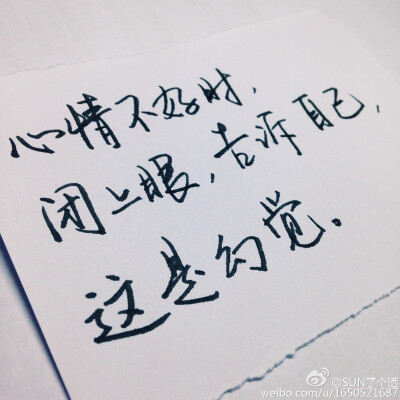 心情不好时，
闭上眼，告诉自己，
这是幻觉。
@SUN了个
weibo.com/u/1650521687